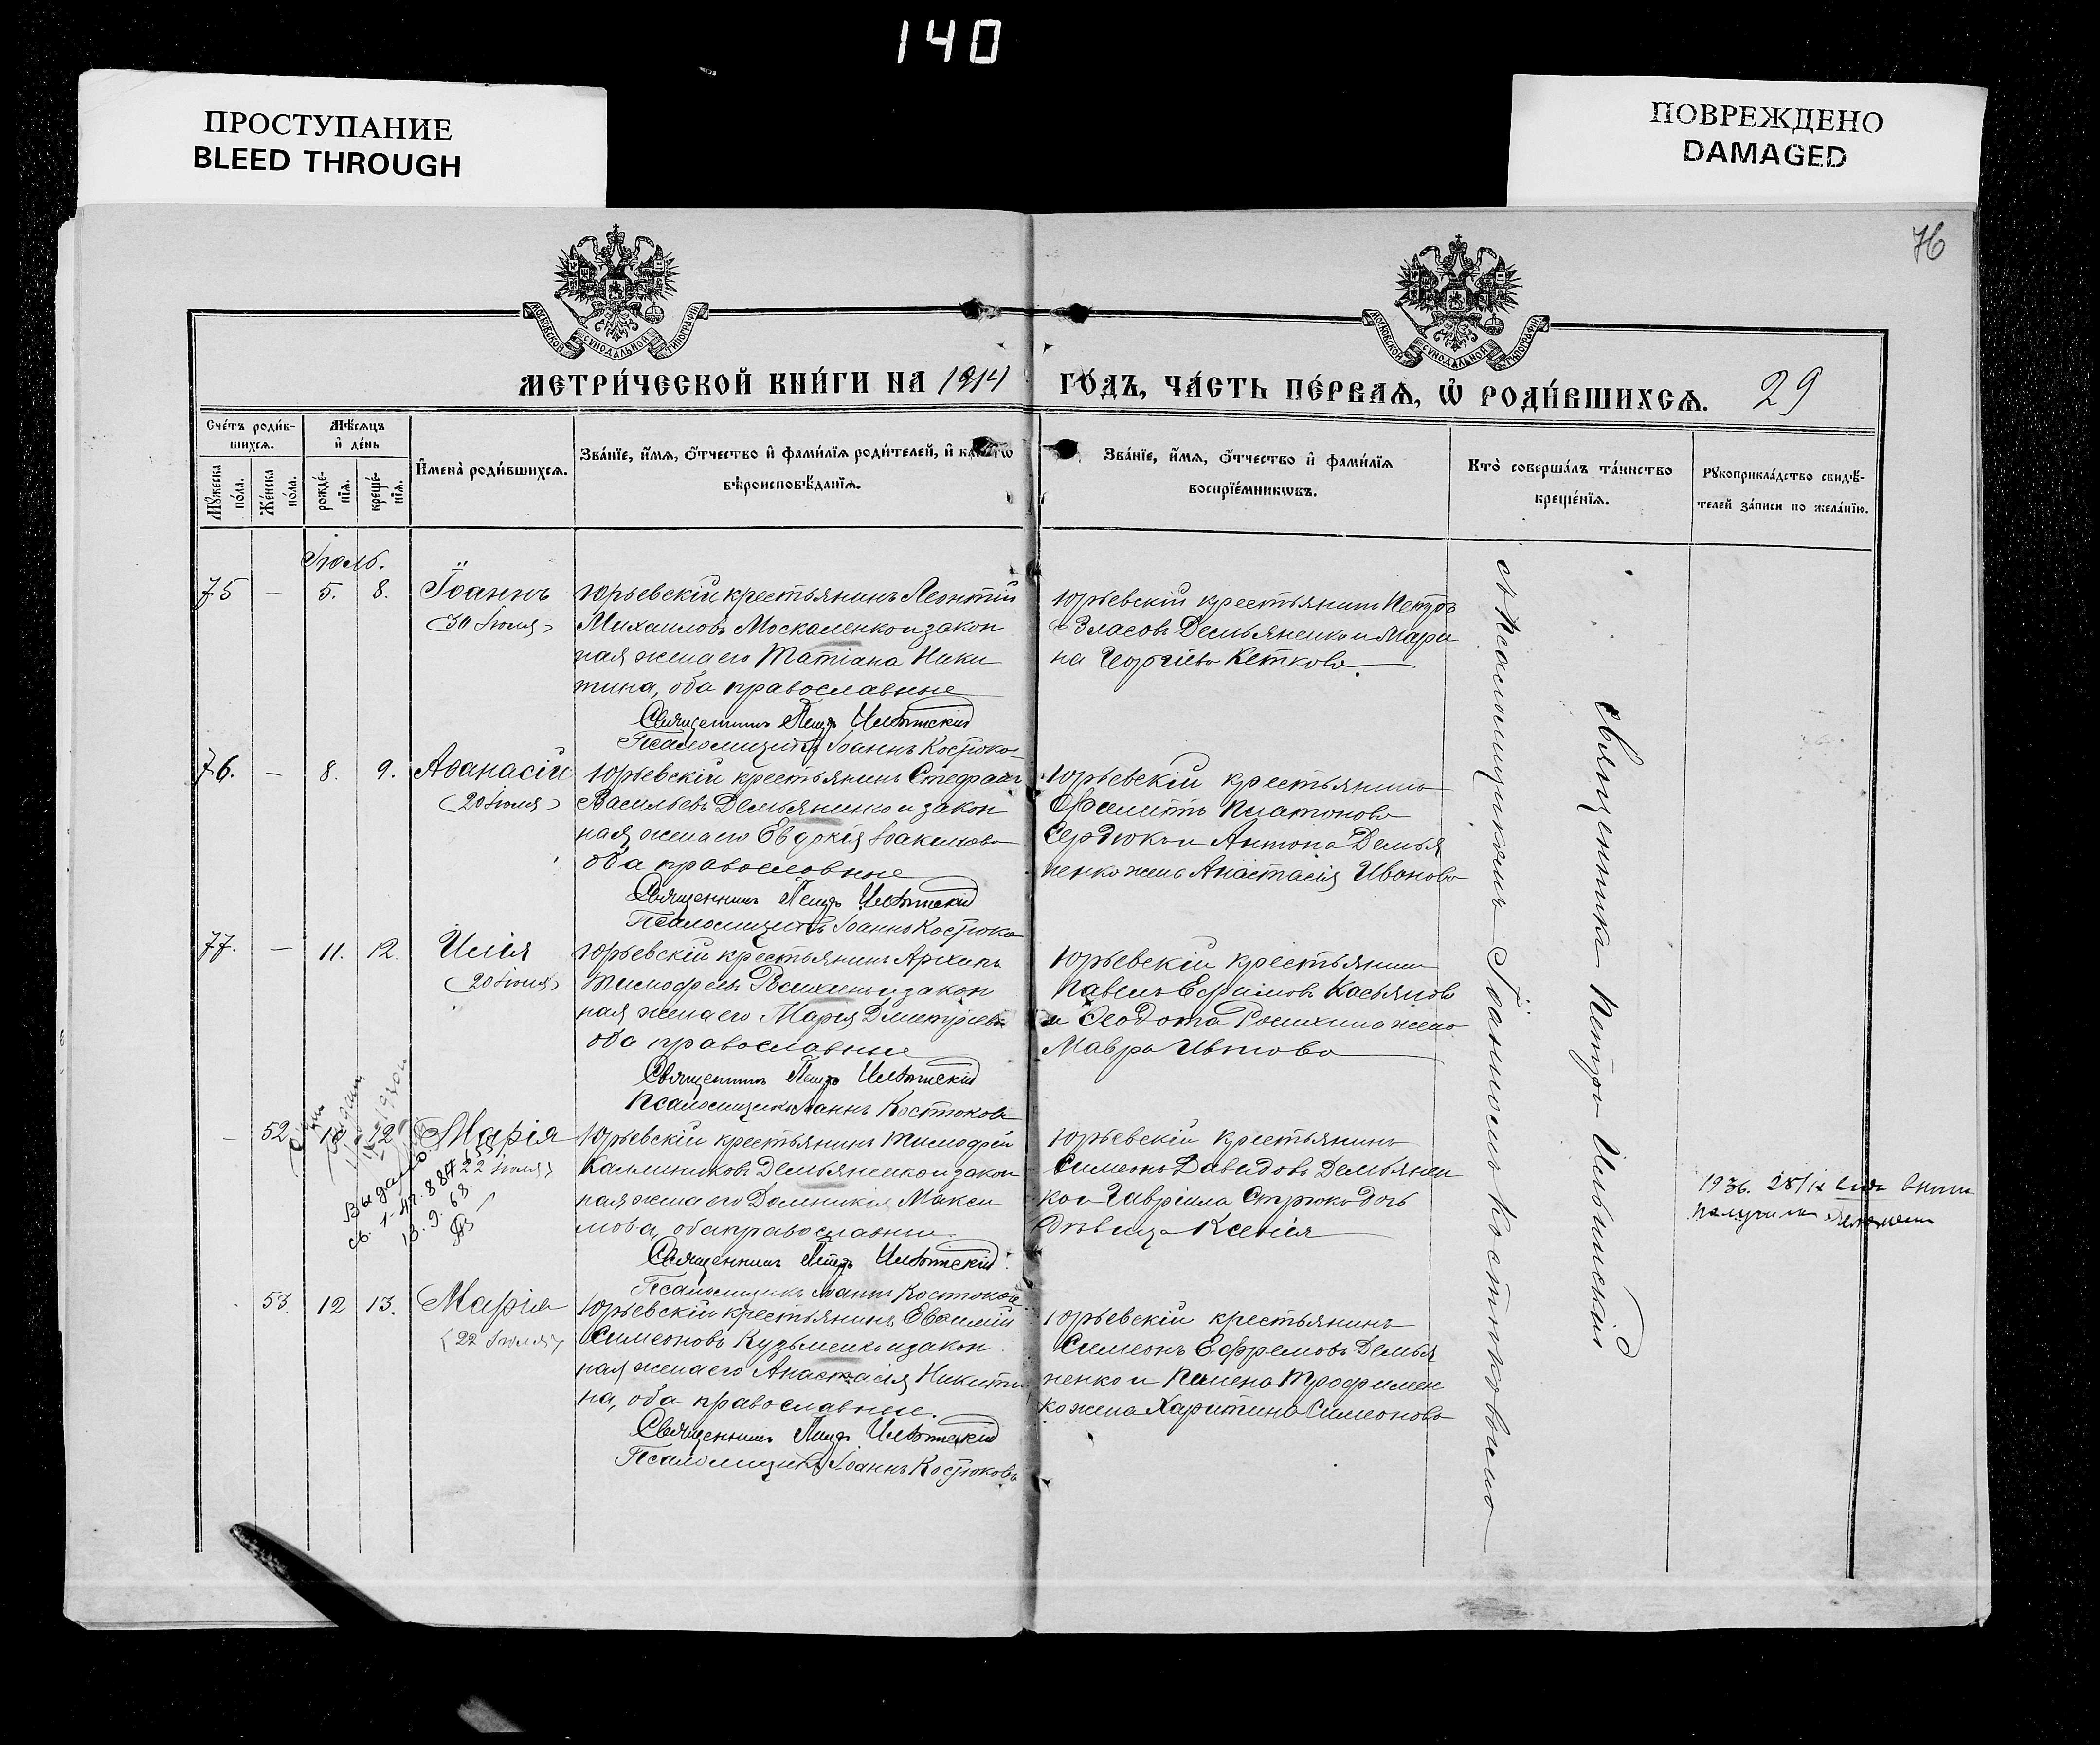 140
ПРОСТУПАНИЕ
BLEED THROUGH
ПОВРЕЖДЕНО
DAMAGED
76
МОСКОВСКОЙ СѴНОДАЛЬНОЙ ТИПОГРАФІИ
МОСКОВСКОЙ СѴНОДАЛЬНОЙ ТИПОГРАФІИ
МЕТРИ́ЧЕСКОЙ КНИ́ГИ НА 1914 ГО́ДЪ, ЧА́СТЬ ПЕ́РВАѦ, Ѡ҆ РОДИ́ВШИХСѦ. 29
Сче́тъ роди́в-
шихсѧ.
Мꙋжеска по́ла.
Же́нска по́ла.
Мѣ́сѧцъ
и҆ де́нь
рожде́-
нїѧ.
креще́-
нїѧ.
И҆мена̀ роди́вшихсѧ.
Зва́нїе, и҆́мѧ, ѻ҆́тчество и҆ фами́лїѧ роди́телей, и҆
вѣроисповѣ́данїѧ.
Зва́нїе, и҆́мѧ, ѻ҆́тчество и҆ фами́лїѧ
воспрїе́мникѡвъ.
Кто̀ соверша́лъ та́инство
креще́нїѧ.
Рꙋкоприкла́дство свидѣ́-
телей за́писи по жела́нїю.
Іюль.
75 — 5. 8. Іоаннъ
(30 Іюля)
Юрьевскій крестьянинъ Леонтій
Михаиловъ Москаленко и закон
ная жена его Татіана Ники
тина, оба православные
Священникъ Петръ Ильинскій
Псаломщикъ Іоаннъ Костюков
Юрьевскій крестьянинъ Петръ
Власовъ Демьяненко и Мари
на Георгіева Кеткова
76. — 8. 9. Аѳанасій
(20 Іюля)
Юрьевскій крестьянинъ Стефанъ
Васильевъ Демьяненко и закон
ная жена его Евдокія Іоакимова
оба православные
Священникъ Петръ Ильинскій
Псаломщикъ Іоаннъ Костюков
Юрьевскій крестьянинъ
Платонова
Сердюка и Антона Демья
ненко жена Анастасія Иванова
77. — 11. 12. Илія
(20 Іюля)
Юрьевскій крестьянинъ Архипъ
Тимофеевъ и закон
ная жена его Марія Дмитріева
оба православные
Священникъ Петръ Ильинскій
Псаломщикъ Іоаннъ Костюковъ
Юрьевскій крестьянинъ
Павелъ Ефимовъ Касьяновъ
и Ѳеодота жена
Мавра Иванова
— 52. 10 12 Марія
(22 Іюля)
Выдано.
18.9.68.
Юрьевскій крестьянинъ Тимофей
Каллиниковъ Демьяненко и закон
ная жена его Домникія Макси
мова, оба православные.
Священникъ Петръ Ильинскій
Псаломщикъ Іоаннъ Костюковъ
Юрьевскій крестьянинъ
Симеонъ Давидовъ Демьянен
ко и Гавріила Стрюка дочь
дѣвица Ксенія
1936. 28/IX
получила
53. 12 13. Марія
(22 Іюля)
Юрьевскій крестьянинъ Евѳимій
Симеоновъ Кузьменко и закон
ная жена его Анастасія Никити
на, оба православные.
Священникъ Петръ Ильинскій
Псаломщикъ Іоаннъ Костюковъ
Юрьевскій крестьянинъ
Симеонъ Ефремовъ Демья
ненко и Пимена Трофимен
ко жена Харитина Симеонова
Священникъ Петръ Ильинскій
съ Псаломщикомъ Іоанномъ Костюковымъ